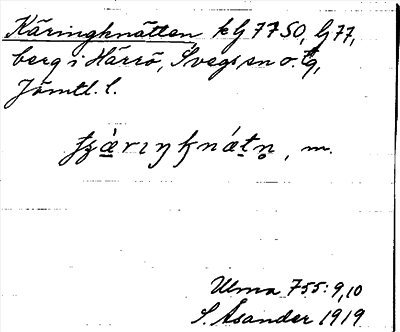 Käringknätten kG 7750, G 77,
berg i Härrö, Svegs sn o. tg,
Jämtl. l.
m.
Ulma 755: 9,10
S. Åsander 1919